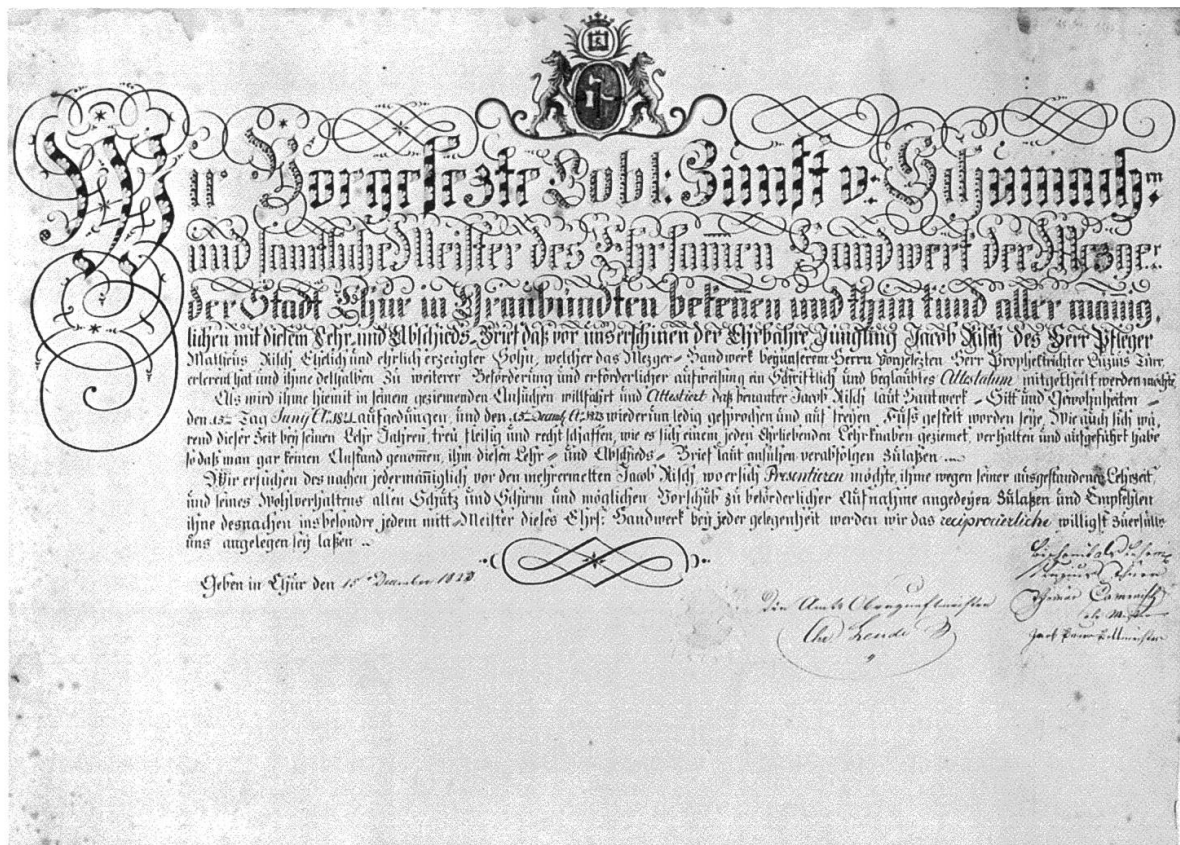 Wir Vorgesezte Lobl: Zunft v: Schumach:ern
und samtliche Meister des Ehrsamen Handwerk der Mezger
der Stadt Chur in Graubündten bekenen und thun kund aller mänig,
lichen mit diesem Lehr, und Abschieds, Brief daß vor uns erschinen der Ehrbahre Jüngling Jacob Risch des Herr Pfleger
Matheus Risch Ehelich und ehrlich erzeugter Sohn, welcher das Mezger-Handwerk bey unserem Herrn Vorgesezten Herr Prophektrichter Luzius Türr,
erlerent hat und ihme desshalben zu weiterer Beförderung und erforderlicher aufweisung ein Schriftlich und beglaubtes Attestatum mitgetheilt werden möchte
Als wird ihme hiemit in seinem geziemenden Ansuchen willfahrt und Attestiert daß benanter Jacob Risch laut Hantwerk - Sitt und Gewohnheiten -
den 15ten Tag Juny A: 1821 aufgedungen, und den 15ten Decemb A: 1823 wiederum ledig gesprochen und auf freyen Fuss gestelt worden seye. Wie auch sich wä,
rend dieser Zeit bey seinen Lehr Jahren, treu fleisig und recht schaffen, wie es sich einem jeden Ehrliebenden Lehrknaben geziemet, verhalten und aufgeführt habe
so daß man gar keinen Anstand genomen, ihm diesen Lehr - und Abschieds - Brief laut ansuhen verabfolgen zulaßen
Wir ersuchen desnachen jedermänniglich vor den mehrermelten Jacob Risch, wo er sich Presentieren möchte, ihme wegen seiner ausgestandenen Lehrzeit,
und seines Wohlverhaltens allen Schutz und Schirm und möglichen Vorschub zu beförderlicher Aufnahme angedeyen zulaßen und Empfehlen
ihne desnachen insbesondre jedem mitt-Meister dieses Ehrs: Handwerk bey jeder gelegenheit werden wir das reciprocierliche willigst zuerfülle
uns angelegen sey laßen
Geben in Chur den 15ten December 1823
Der Amts Oberzunftmeister
Chr